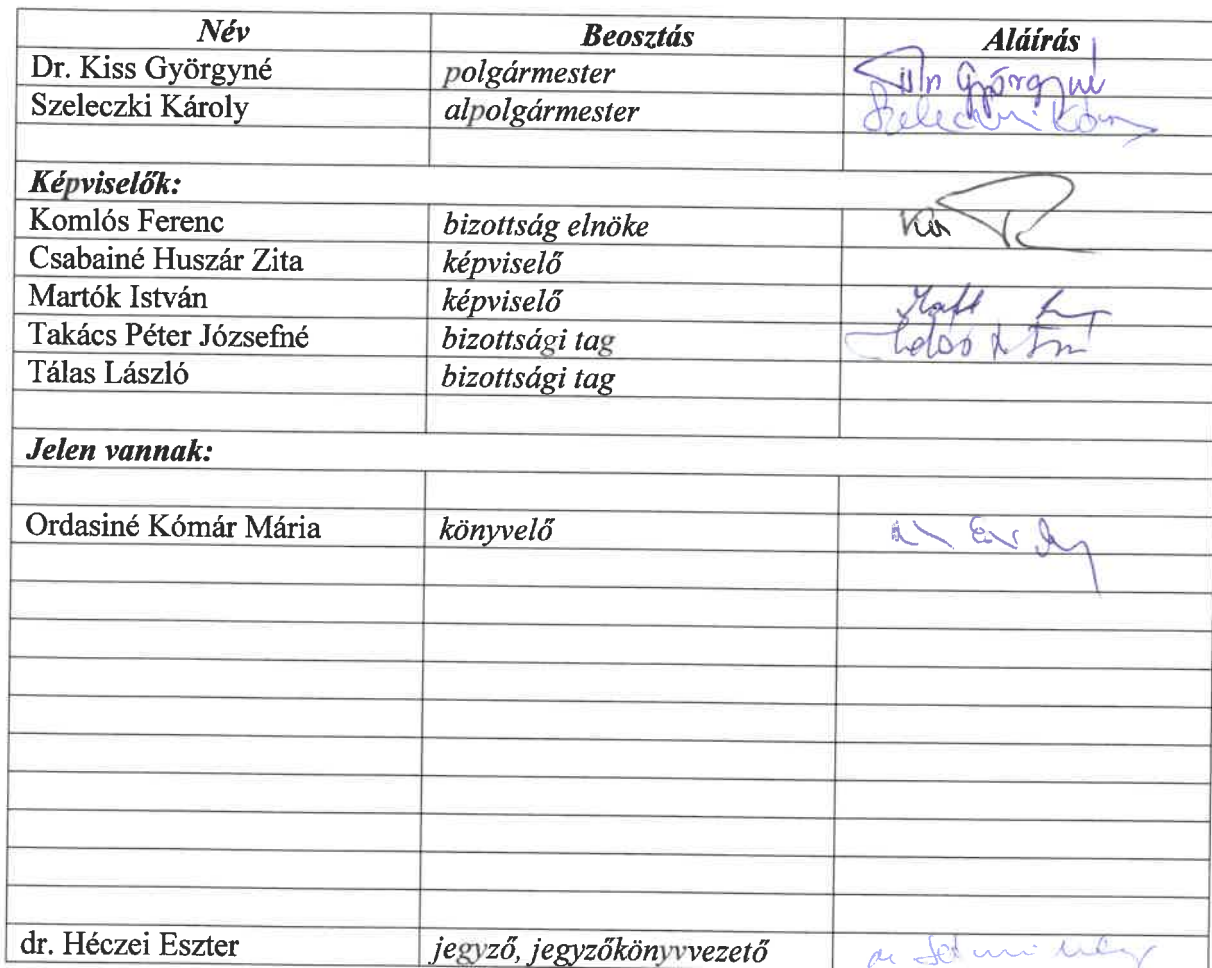 Név Beosztás Aláírás
Dr. Kiss Györgyné polgármester Györgyné
Szeleczki Károly alpolgármester
Képviselők:
Komlós Ferenc bizottság elnöke
Csabainé Huszár Zita képviselő
Martók István képviselő
Takács Péter Józsefné bizottsági tag
Tálas László bizottsági tag
Jelen vannak:
Ordasiné Kómár Mária könyvelő
dr. Héczei Eszter jegyző, jegyzőkönyvvezető